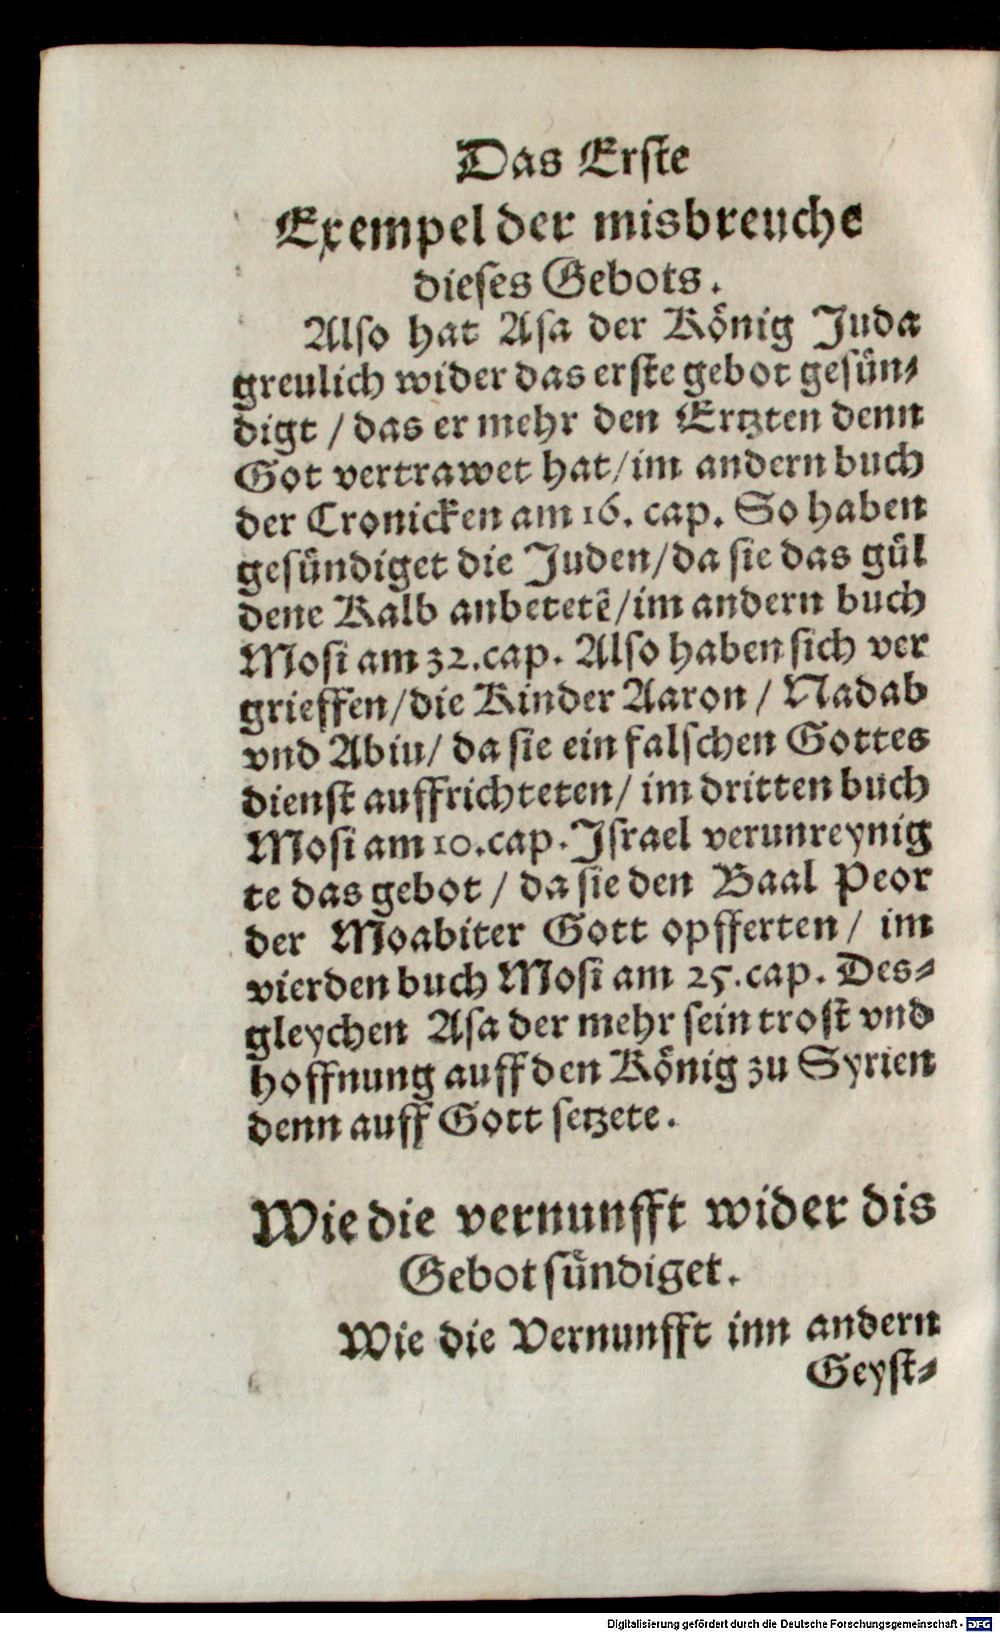 Das Erste
Exempel der misbreuche
dieses Gebots.
Also hat Asa der König Juda
greulich wider das erste gebot gesün⸗
digt / das er mehr den Ertzten denn
Got vertrawet hat/im andern buch
der Cronicken am 16. cap. So haben
gesündiget die Juden/da sie das gül
dene Kalb anbetetẽ/im andern buch
Mosi am 32.cap. Also haben sich ver
grieffen/die Kinder Aaron / Nadab
vnd Abiu/ da sie ein falschen Gottes
dienst auffrichteten/ im dritten buch
Mosi am 10.cap. Israel verunreynig
te das gebot / da sie den Baal Peor
der Moabiter Gott opfferten/ im
vierden buch Mosi am 25.cap. Des⸗
gleychen Asa der mehr sein trost vnd
hoffnung auff den König zu Syrien
denn auff Gott setzete.
Wie die vernunfft wider dis
Gebot sündiget.
Wie die Vernunfft inn andern
Geyst⸗
Digitalisierung gefördert durch die Deutsche Forschungsgemeinschaft - DFG